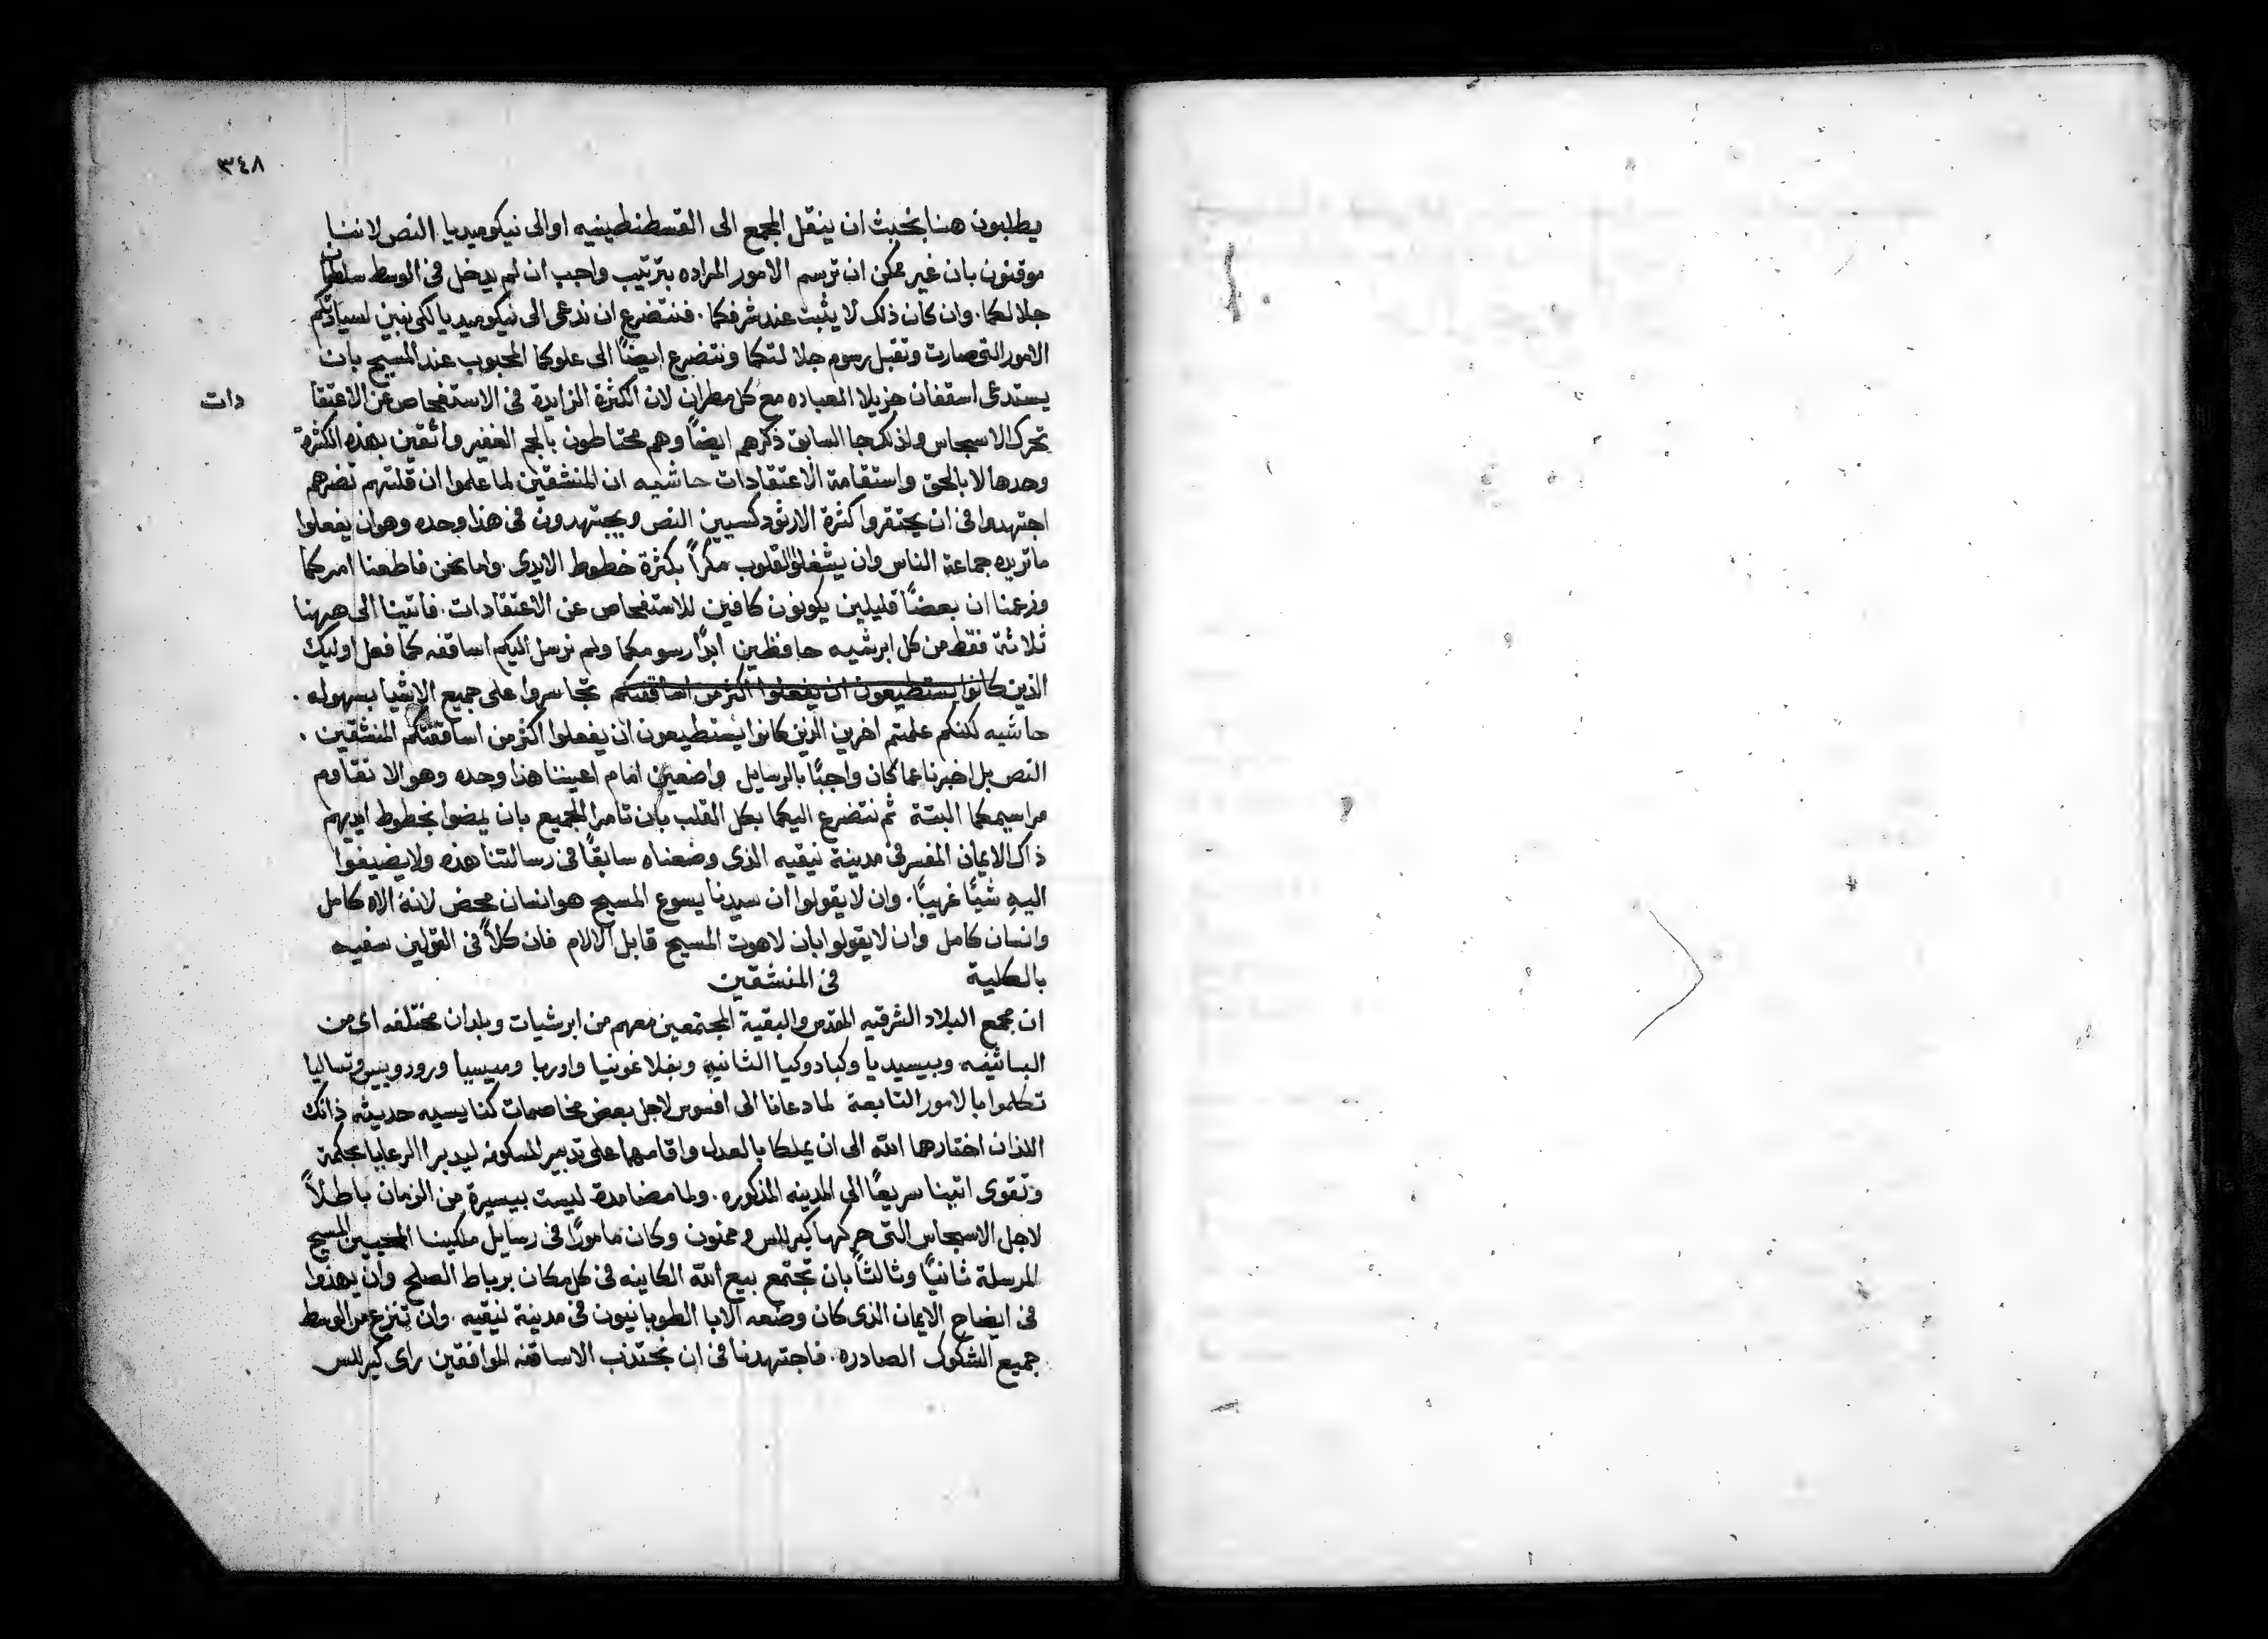 ٣٤٨
يطلبون هنا بخبث ان ينقل المجمع الى القسطنطينيه او الى نيكوميديا النص لاننا
موقنون بان غير ممكن ان ترسم الامور المراده بترتيب واجب ان لم يدخل في الوسط سلطان
جلالكما. وان كان ذلك لا يثبت عند شرفكما. فنتضرع ان ندعى الى نيكوميديا لكي نبين لسيادتكم
الامور التي صارت وتقبل رسوم جلالتكما ونتضرع ايضاً الى علوكما المحبوب عند المسيح بان
يستدعى اسقفان جزيلا العباده مع كل مطران لان الكثرة الزايدة في الاستفحاص عن الاعتقا
دات
تحرك الاسجاس ولذلك جا السابق ذكرهم ايضاً وهم محتاطون بالجم الغفير واثقين بهذه الكثرة
وحدها لا بالحق واستقامة الاعتقادات حاشيه ان المنشقين لما علموا ان قلتهم تضرهم
اجتهدوا في ان يحتقروا كثرة الارثودكسيين النص ويجتهدون في هذا وحده وهو ان يفعلوا
ما تريده جماعة الناس وان يشغلوا القلوب مكراً بكثرة خطوط الايدي. واما نحن فاطعنا امركما
وزعمنا ان بعضاً قليلين يكونون كافين للاستفحاص عن الاعتقادات. فاتينا الى ههنا
ثلاثة فقط من كل ابرشيه حافظين ابداً رسومكما ولم نرسل اليكم اساقفه كما فعل اوليك
الذين كانوا يستطيعون ان يفعلوا اكثر من اساقفتكم تجاسروا على جميع الاشيا بسهوله.
حاشيه لكنكم علمتم اخرين الذين كانوا يستطيعون ان يفعلوا اكثر من اساقفتكم المنشقين.
النص بل اخبرنا عما كان واجباً بالرسايل واضعين امام اعيننا هذا وحده وهو الا نقاوم
مراسيمكما البتة ثم نتضرع اليكما بكل القلب بان تامرا الجميع بان يمضوا بخطوط ايديهم
ذاك الايمان المفسر في مدينة نيقيه الذي وضعناه سابقاً في رسالتنا هذه ولا يضيفوا
اليه شياً غريباً. وان لا يقولوا ان سيدنا يسوع المسيح هو انسان محض لانه الاه كامل
وانسان كامل وان لا يقولوا بان لاهوت المسيح قابل الالام فان كلاً في القولين سفيه
بالكلية في المنشقين
ان مجمع البلاد الشرقيه المقدس والبقية المجتمعين معهم من ابرشيات وبلدان مختلفه اى من
البيثنيه وبيسيديا وكبادوكيا الثانيه وبفلاغونيا واوربا وميسيا ورودوبيس وتساليا
تكلموا بالامور التابعة لما دعانا الى افسوس لاجل بعض مخاصمات كنايسيه حديثه ذانك
اللذان اختارهما الله الى ان يملكا بالعدل واقامهما على تدبير المسكونه ليدبرا الرعايا بحكمة
وتقوى اتينا سريعاً الى المدينه المذكوره. ولما مضا مدة ليست بيسيرة من الزمان باطلاً
لاجل الاسجاس التي حركها كيرللس و ممنون وكان مامورًا في رسايل ملكينا المحبين المسيح
المرسلة ثانياً وثالثاً بان تجتمع بيع الله الكاينه في كل مكان برباط الصلح وان يهذوا
في ايضاح الايمان الذي كان وضعه الابا الطوبانيون في مدينة نيقيه. وان تنزع من الوسط
جميع الشكوك الصادره. فاجتهدنا في ان نجتذب الاساقفه الموافقين راى كيرللس